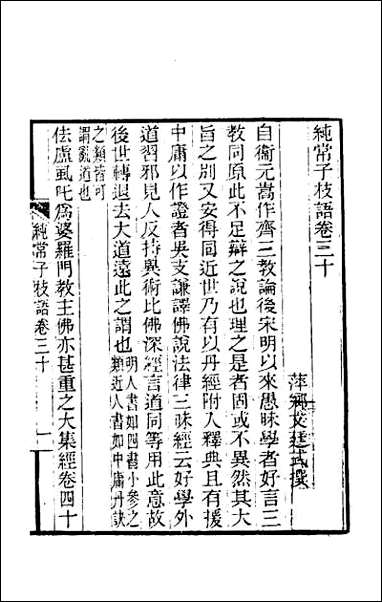 純常子枝語卷三十
萍鄉文廷式撰
自衞元嵩作齊三教論後宋明以來愚昧學者好言三
教同原此不足辯之說也理之是者固或不異然其大
旨之別又安得同近世乃有以丹經附入釋典且有援
中庸以作證者吳支謙譯佛說法律三昧經云好學外
道習邪見人反持異術比佛深經言道同等用此意故
後世轉退去大道遠此之謂也
明人書如四書小參之
類近人書如中庸丹訣
之類皆可
謂亂道也
佉盧虱吒爲婆羅門教主佛亦甚重之大集經卷四十
純常子枝語卷三十
一